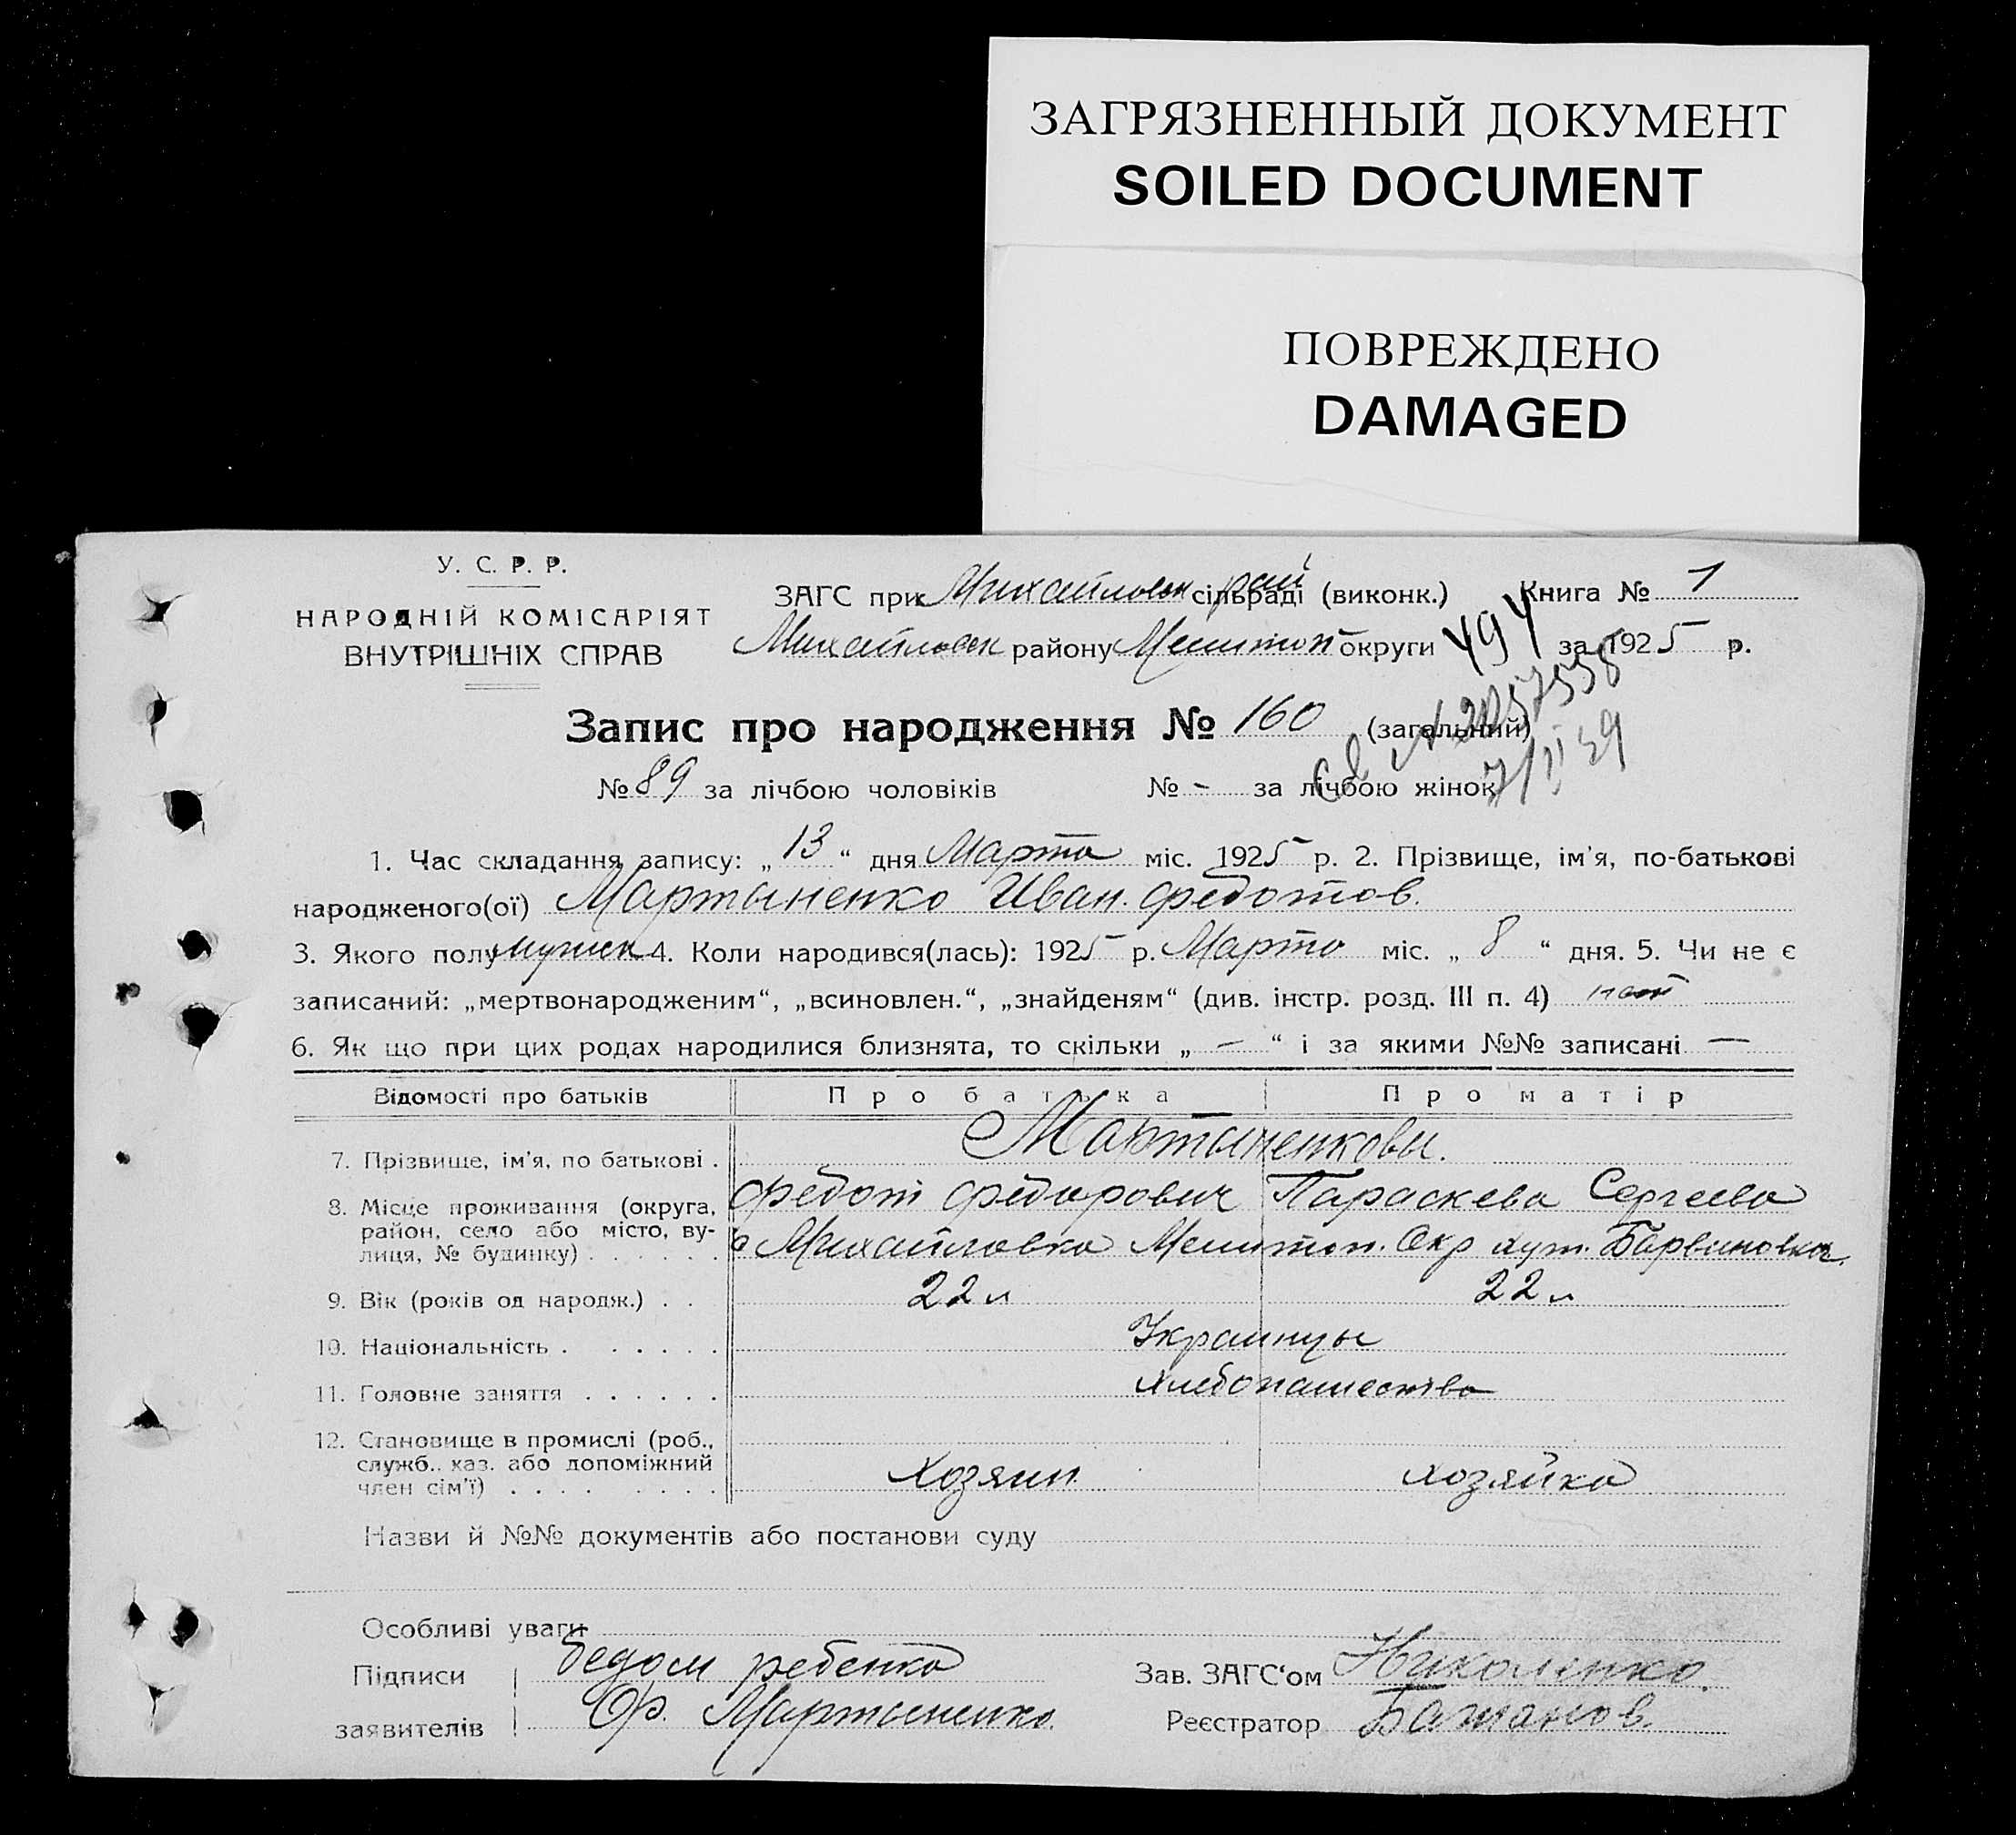 ЗАГРЯЗНЕННЫЙ ДОКУМЕНТ
SOILED DOCUMENT
ПОВРЕЖДЕНО
DAMAGED
У. С. Р. Р.
НАРОДНІЙ КОМІСАРІЯТ
ВНУТРІШНІХ СПРАВ
ЗАГС при Михайловск рай сільраді (виконк.) Книга № 1
Михайловск району Мелитоп округи 494 за 1925 р.
Запис про народження № 160 (загальний)
№ 89 за лічбою чоловіків № - за лічбою жінок
1. Час складання запису: „ 13 “ дня Марта міс. 1925 р. 2. Прізвище, ім'я, по-батькові
народженого(ої) Мартыненко Иван. Федотов.
3. Якого полу мужск 4. Коли народився(лась): 1925 р. Марта міс. „ 8 “ дня. 5. Чи не є
записаний: „мертвонародженим“, „всиновлен.“, „знайденям“ (див. інстр. розд. III п. 4) нет
6. Як що при цих родах народилися близнята, то скільки „ — “ і за якими №№ записані —
Відомості про батьків Про батька Про матір
7. Прізвище, ім'я, по батькові . Мартыненковы.
Федот Федорович Параскева Сергеева
8. Місце проживання (округа, район, село або місто, ву-
лиця, № будинку) . . . . . . с Михайловка Мелитоп. Окр хут. Барвиновка.
9. Вік (років од народж.) . . 22 л 22 л
10. Національність . . . . . . Украинцы
11. Головне заняття . . . . . . хлебопашество
12. Становище в промислі (роб.,
служб.. хаз. або допоміжний
член сім'ї) . . . . . . . . Хозяин хозяйка
Назви й №№ документів або постанови суду
Особливі уваги
Підписи ребенка Зав. ЗАГС'ом Николенко.
заявителів Ф. Мартыненко. Реєстратор